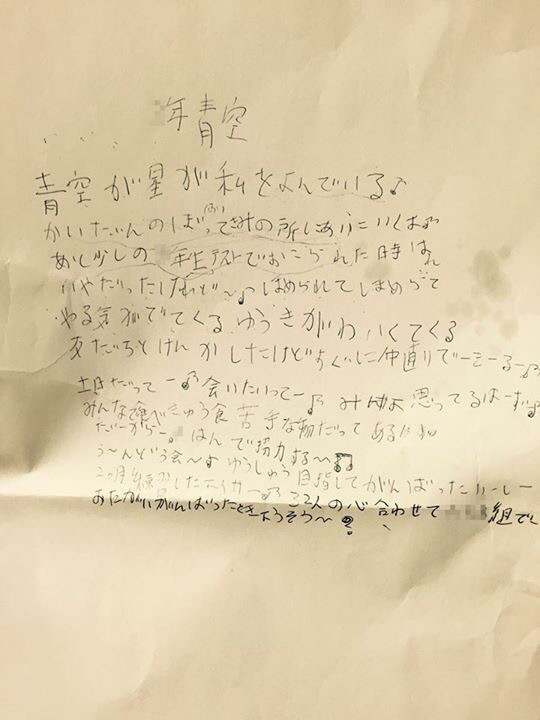 年青空
青空が星が私をよんでいる♪
かいだんのぼってきみの所にあいにいくよ
あと少しの 年生テストでおこられた時は
いやだったけれど〜♪ほめられてしまめらて
やる気がでてくるゆうきがわいてくる
友だちとけんかしたけどすぐに仲直りでーきーる〜♪
土日だってー♪会いたいってー♪みんな思ってるはーず♪
みんな食べきゅう食苦手な物だってあるけど
だーからー はんで協力する〜♫
う〜んどう会〜♪ゆうしょう目指してがんばった
2ヶ月練習した
おたがいがんばったときたろそう〜 32人の心合わせて 組で